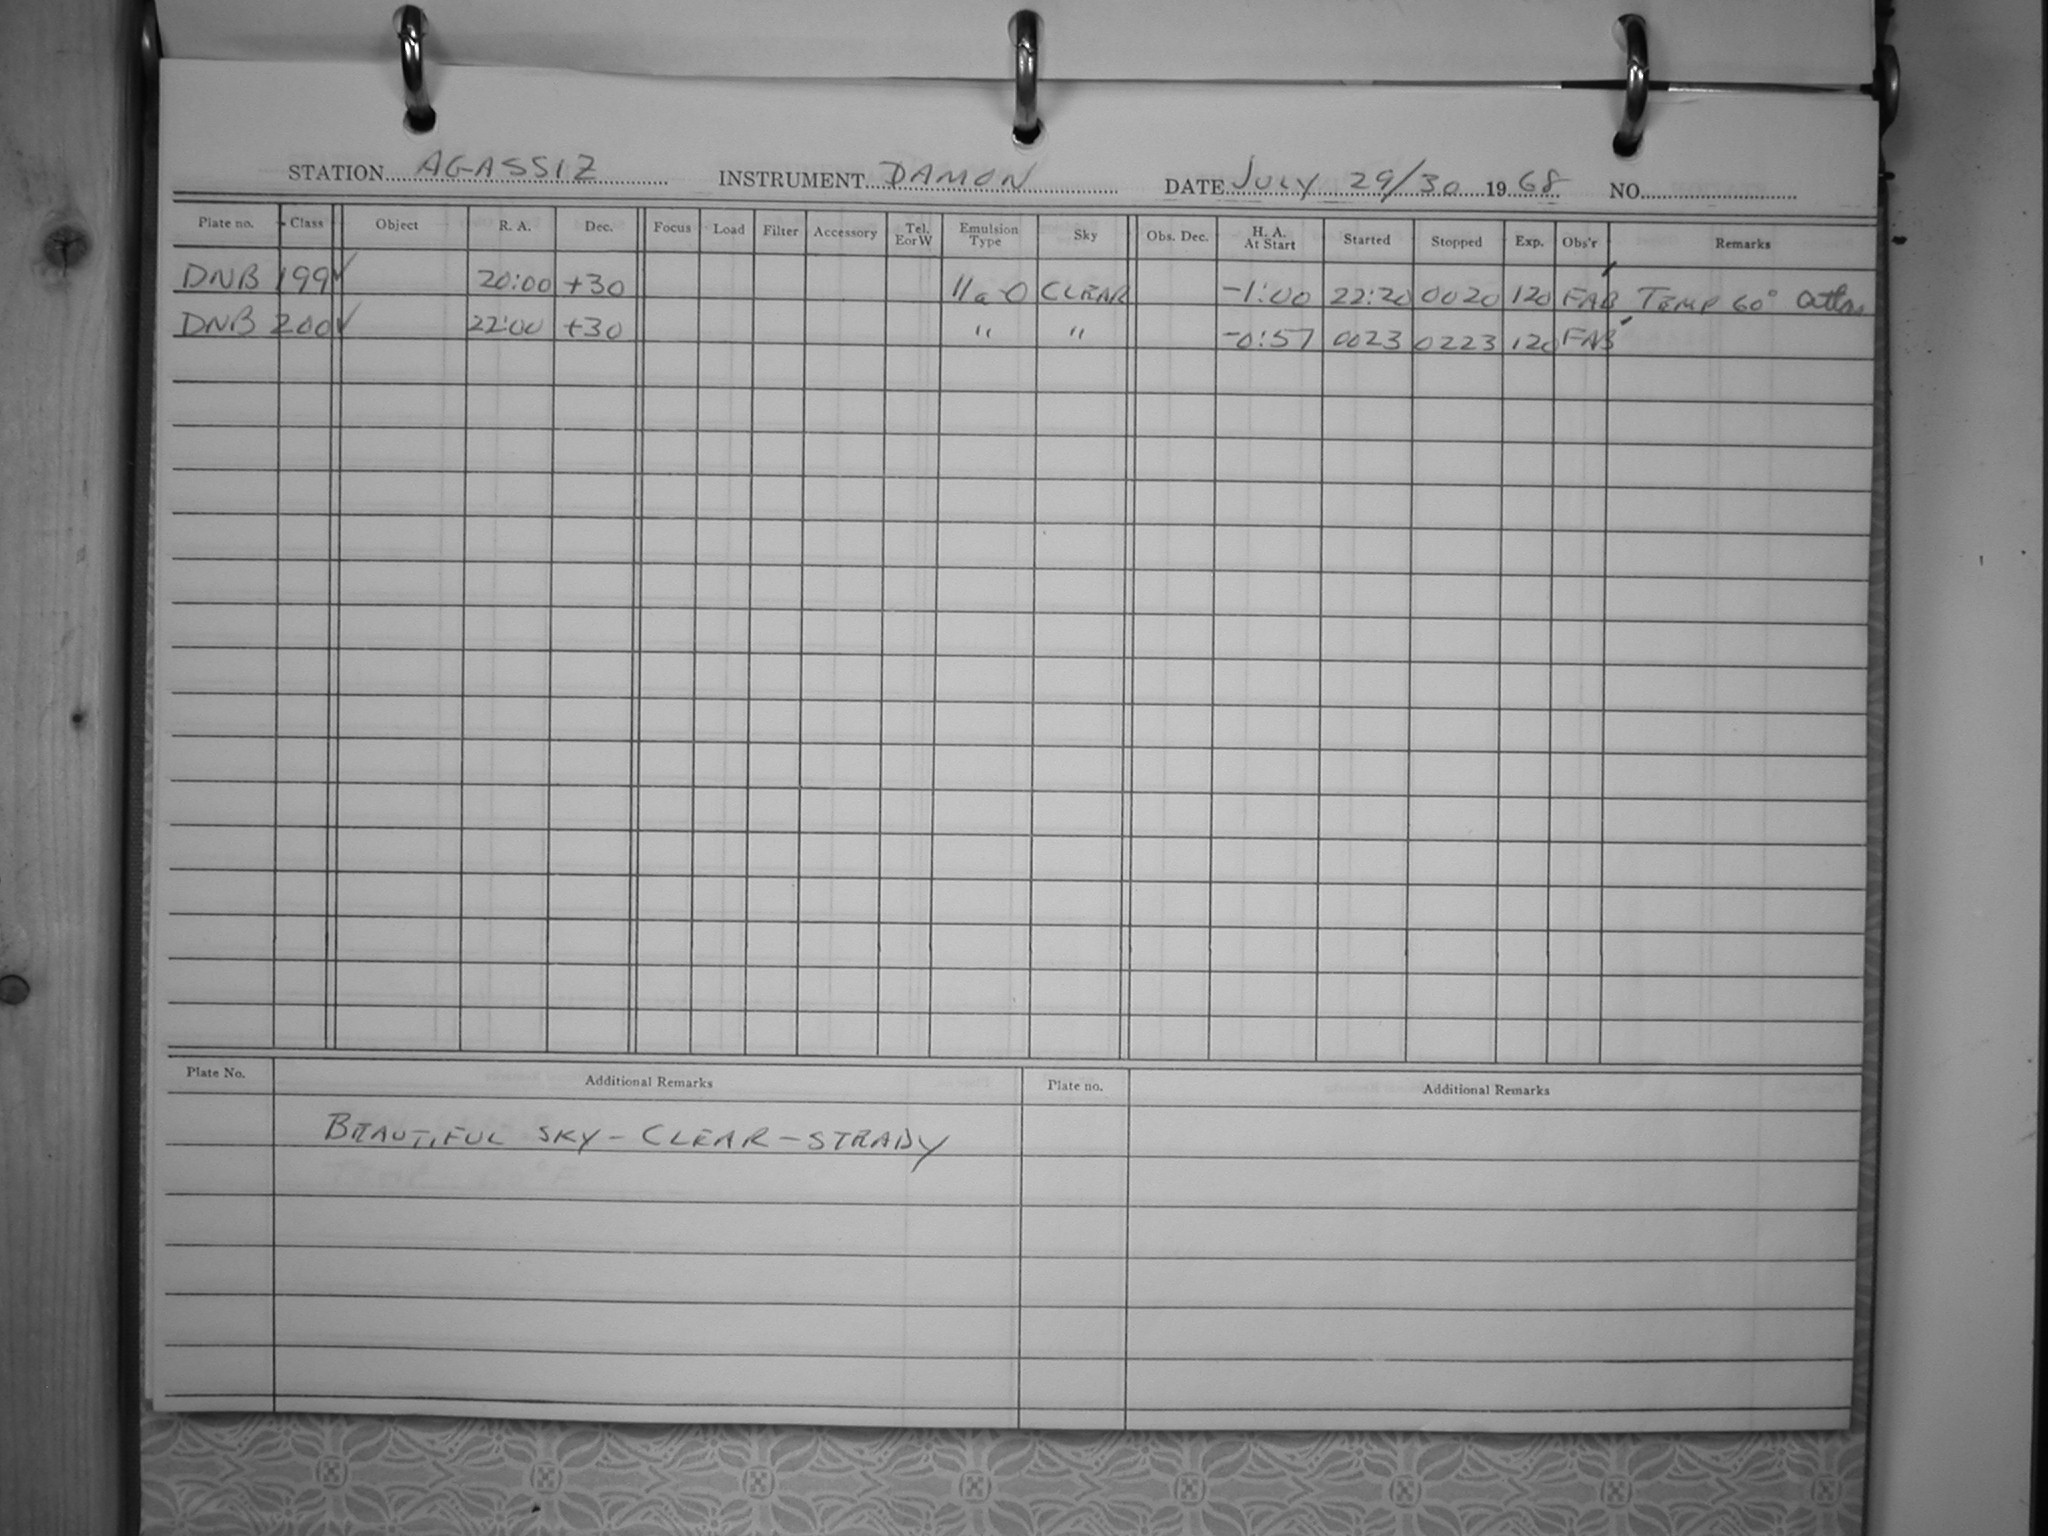 STATION AGASSIZ INSTRUMENT DAMON DATE JULY 29/30 1968 NO.
Plate no. Class Object R. A. Dec. Focus Load Filter Accessory Tel. E or W Emulsion Type Sky Obs. Dec. H. A. At Start Started Stopped Exp. Obs'r Remarks
DNB 199✓ 20:00 +30 IIa-O CLEAR -1:00 22:20 0020 120 FAB TEMP 60°
DNB 200✓ 22:00 +30 " " -0:57 0023 0223 120 FAB
Plate No. Additional Remarks Plate no. Additional Remarks
BEAUTIFUL SKY - CLEAR - STEADY